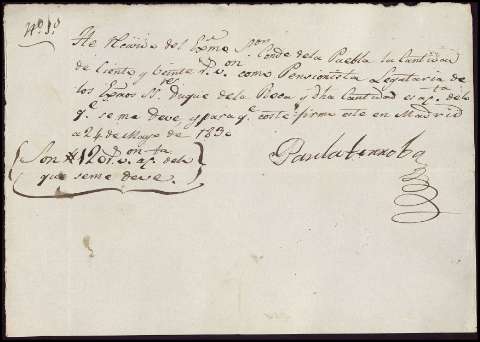 He Recivido del Exmo Sor Conde de la Puebla la Cantidad
de Ciento y Veinte Rs. von como Pensionista Legataria de
los Exmos Sres Duque de la Roca y dha Cantidad es a qta. de lo
qe. se me deve y para qe. coste firmo este en Madrid
a 24 de Mayo de
Son # 120 rs. von a qta. de lo
que seme deve.
Paula